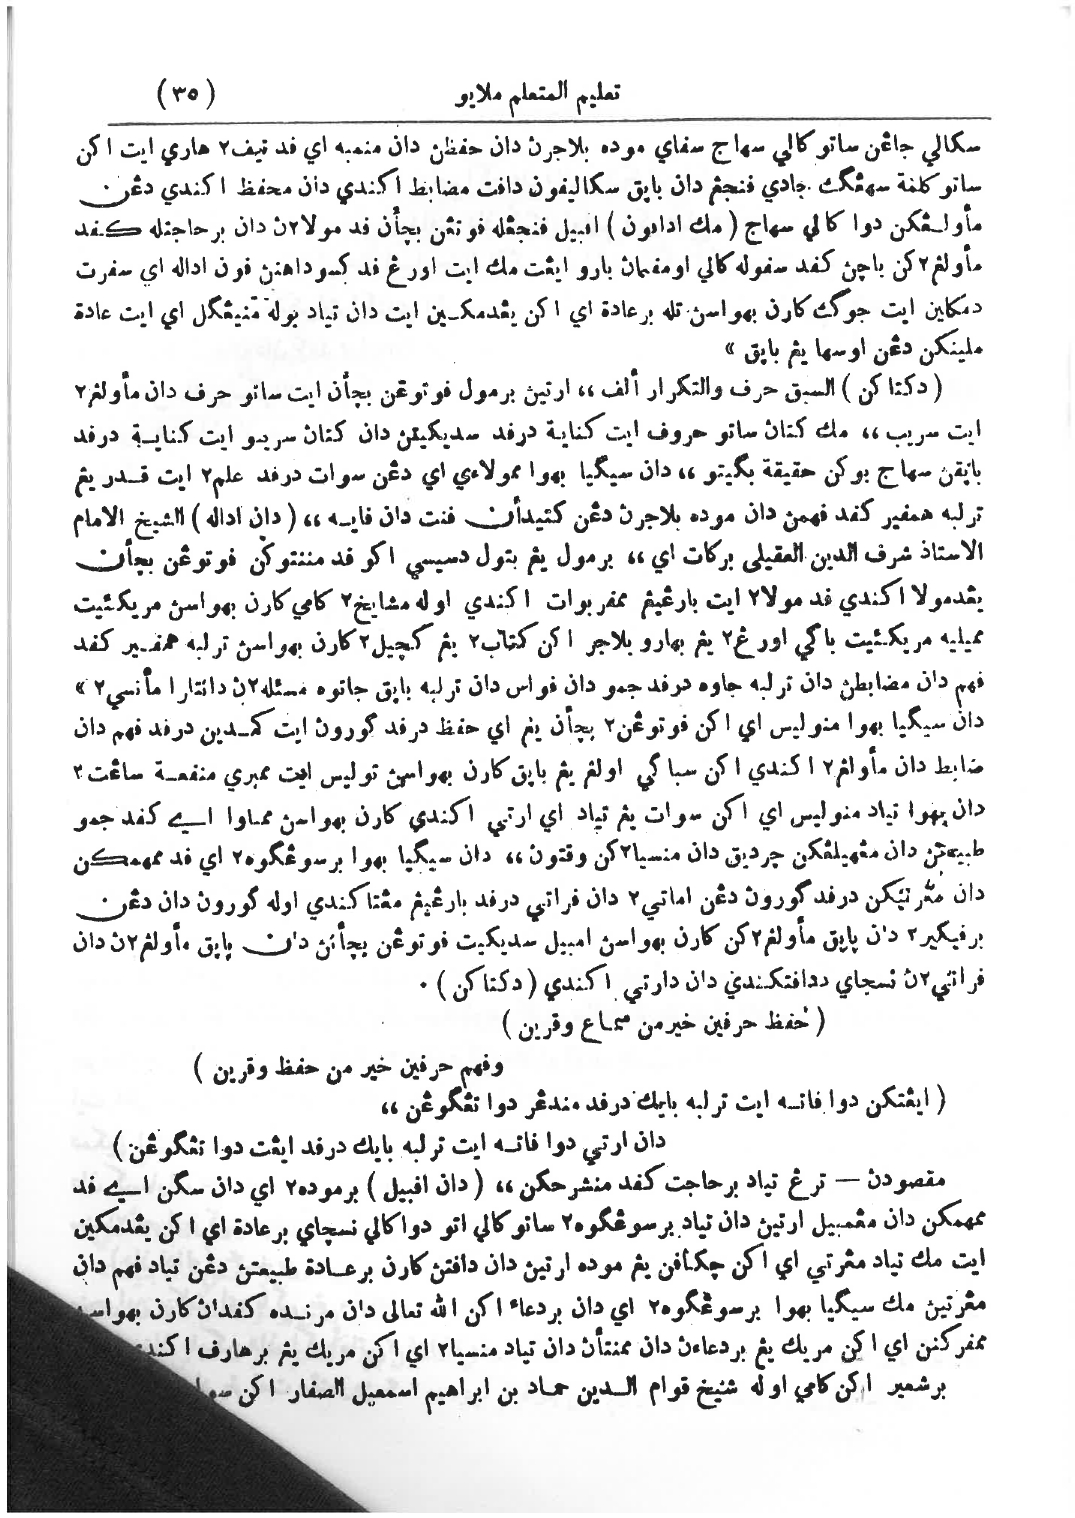 تعليم المتعلم ملايو (٣٥)
سكالي جاڠن ساتو كالي سهاج سفاي موده بلاجرن دان حفظن دان منمبه اي فد تيف٢ هاري ايت اكن
ساتو كلمة سهڠڬ جادي فنجڠ دان باپق سكاليفون دافت مضابط اكندي دان محفظ اكندي دڠن
مأولڠكن دوا كالي سهاج (مك اداڤون) افبيل فنجڠله فوتڠن بچأن فد مولا٢ن دان برحاجتله كفد
مأولڠ٢كن باچن كفد سفوله كالي اومفمان بارو ايڠت مك ايت اورڠ فد كسوداهنن فون اداله اي سفرت
دمكين ايت جوڬ كارن بهواسن تله برعادة اي اكن يڠدمكين ايت دان تياد بوله منيڠڬل اي ايت عادة
ملينكن دڠن اوسها يڠ باپق »
(دكتاكن) السبق حرف والتكرار ألف ،، ارتين برمول فوتوڠن بچأن ايت ساتو حرف دان مأولڠ٢
ايت سريب ،، مك كتان ساتو حروف ايت كناية درفد سديكيتن دان كتان سريبو ايت كناية درفد
باپقن سهاج بوكن حقيقة بگيتو ،، دان سيڬيا بهوا ممولاءي اي دڠن سوات درفد علم٢ ايت قدر يڠ
ترلبه همفير كفد فهمن دان موده بلاجرن دڠن كتيدأن فنت دان فايه ،، (دان اداله) الشيخ الامام
الاستاذ شرف الدين العقيلى بركات اي ،، برمول يڠ بتول دسيسي اكو فد مننتوكن فوتوڠن بچأن
يڠدمولا٢ اكندي فد مولا٢ ايت بارڠيڠ ممفربوات اكندي اوله مشايخ٢ كامي كارن بهواسن مريكئيت
مميليه مريكئيت باڬي اورڠ٢ يڠ بهارو بلاجر اكن كتاب٢ يڠ كچيل٢ كارن بهواسن ترلبه همفير كفد
فهم دان مضابطن دان ترلبه جاوه درفد جمو دان فواس دان ترلبه باپق جاتوه مسئله٢ن دانتارا مأنسي٢ »
دان سيڬيا بهوا منوليس اي اكن فوتوڠن٢ بچأن يڠ اي حفظ درفد ڬورون ايت كمدين درفد فهم دان
ضابط دان مأولڠ٢ اكندي اكن سباڬي اولڠ يڠ باپق كارن بهواسن توليس ايت ممبري منفعة ساڠت٢
دان بهوا تياد منوليس اي اكن سوات يڠ تياد اي ارتي اكندي كارن بهواسن ممباوا اي كفد جمو
طبيعتن دان مڠهيلڠكن چرديق دان منسيا٢كن وقتون ،، دان سيڬيا بهوا برسوڠڬوه٢ اي فد ممهمكن
دان مڠرتيكن درفد ڬورون دڠن اماتي٢ دان فراتي درفد بارڠيڠ مڠتاكندي اوله ڬورون دان دڠن
برفيكير٢ دان باپق مأولڠ٢كن كارن بهواسن امبيل سديكيت فوتوڠن بچأئن دان باپق مأولڠ٢ن دان
فراتي٢ن نسچاي ددافتكندي دان دارتي اكندي (دكتاكن) ٠
(حفظ حرفين خير من سماع وقرين)
وفهم حرفين خير من حفظ وقرين)
(ايڠتكن دوا فاته ايت ترلبه بايك درفد مندڠر دوا تڠڬوڠن ،،
دان ارتي دوا فاته ايت ترلبه بايك درفد ايڠت دوا تڠڬوڠن)
مقصودن — ترڠ تياد برحاجت كفد منشرحكن ،، (دان افبيل) برموده٢ اي دان سڬن اي فد
ممهمكن دان مڠمبيل ارتين دان تياد برسوڠڬوه٢ ساتو كالي اتو دوا كالي نسچاي برعادة اي اكن يڠدمكين
ايت مك تياد مڠرتي اي اكن چكافن يڠ موده ارتين دان دافتن كارن برعادة طبيعتن دڠن تياد فهم دان
مڠرتين مك سيڬيا بهوا برسوڠڬوه٢ اي دان بردعاء اكن الله تعالى دان مرنده كفدان كارن بهواسن
ممفركنن اي اكن مريك يڠ بردعاءن دان ممنتأن دان تياد منسيا٢ اي اكن مريك يڠ برهارف اكندي
برشعير اكن كامي اوله شيخ قوام الدين حماد بن ابراهيم اسمعيل الصفار اكن